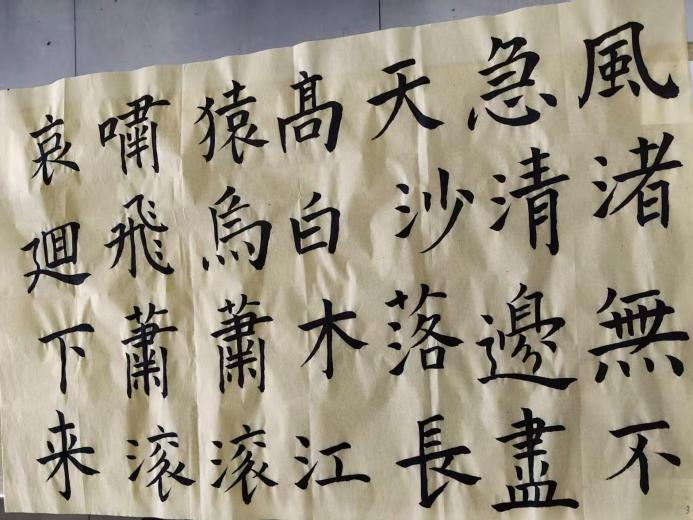 風急天髙猿嘯哀
渚清沙白鳥飛廻
無邊落木蕭蕭下
不盡長江滚滚来